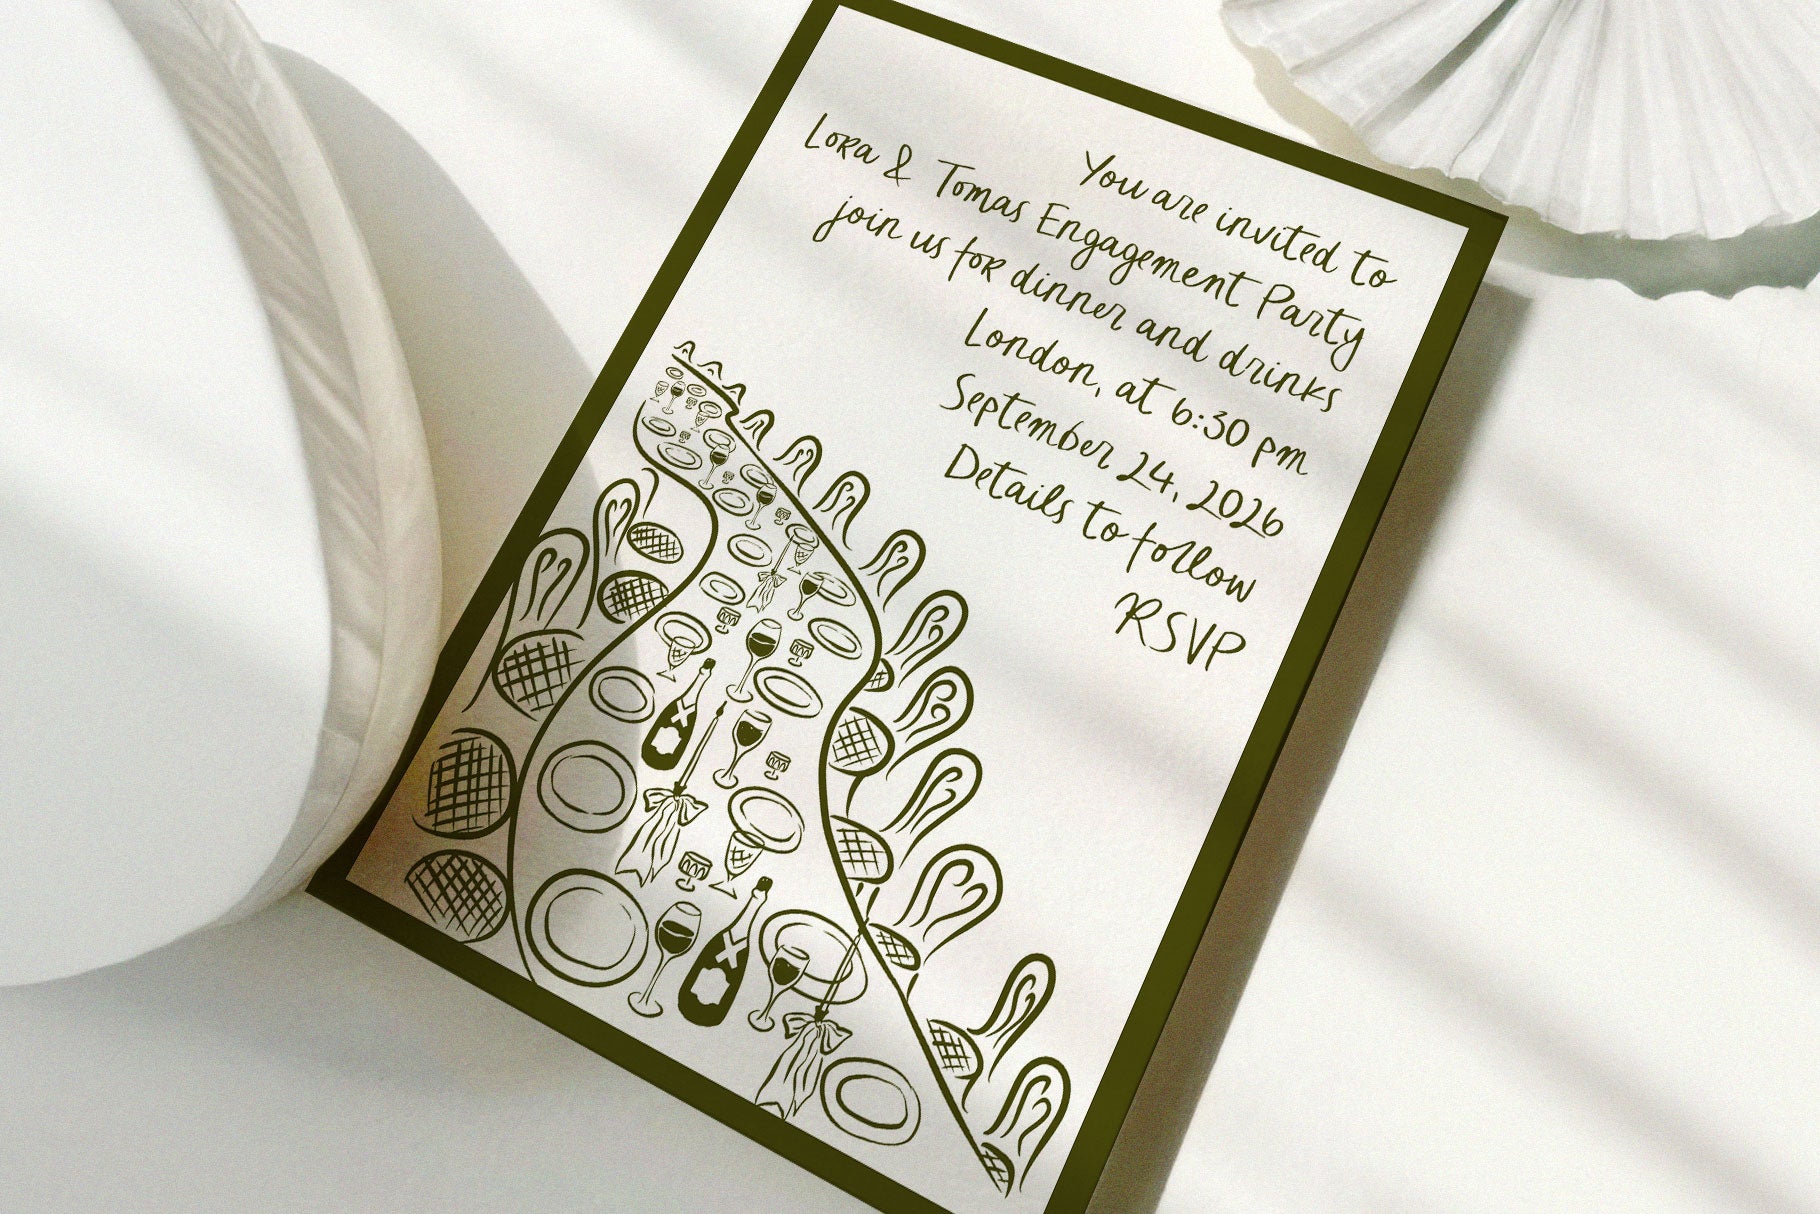 You are invited to
Lora & Tomas Engagement Party
join us for dinner and drinks
London, at 6:30 pm
September 24, 2026
Details to follow
RSVP